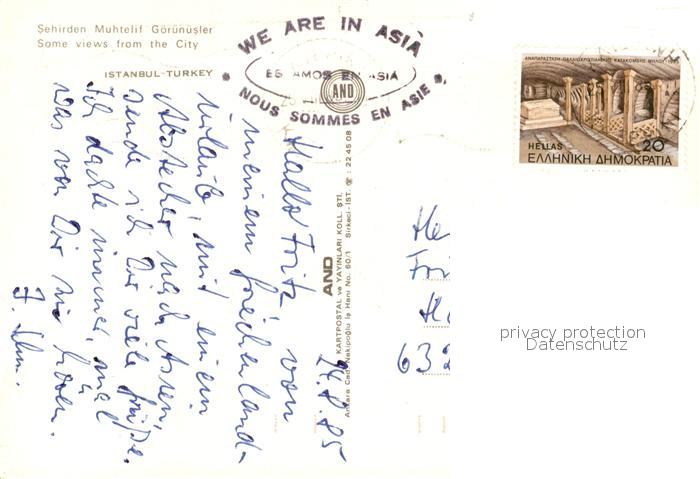 Şehirden Muhtelif Görünüşler
Some views from the City
ISTANBUL-TURKEY
WE ARE IN ASIA
ESTAMOS EN ASIA
AND
NOUS SOMMES EN ASIE
HELLAS 20
ΕΛΛΗΝΙΚΗ ΔΗΜΟΚΡΑΤΙΑ
AND
KARTPOSTAL ve YAYINLARI KOLL. ŞTİ.
Ankara Cad. Nakipoğlu İş Hanı No. 60/1 Sirkeci-IST. ☎ : 22 45 08
24.8.85
Hallo Fritz, von
meinem Griechenland-
urlaub, mit einem
Abstecher nach Asien,
sende ich Dir viele Grüße.
Ich dachte immer, mal
was von Dir zu hören.
632
privacy protection
Datenschutz